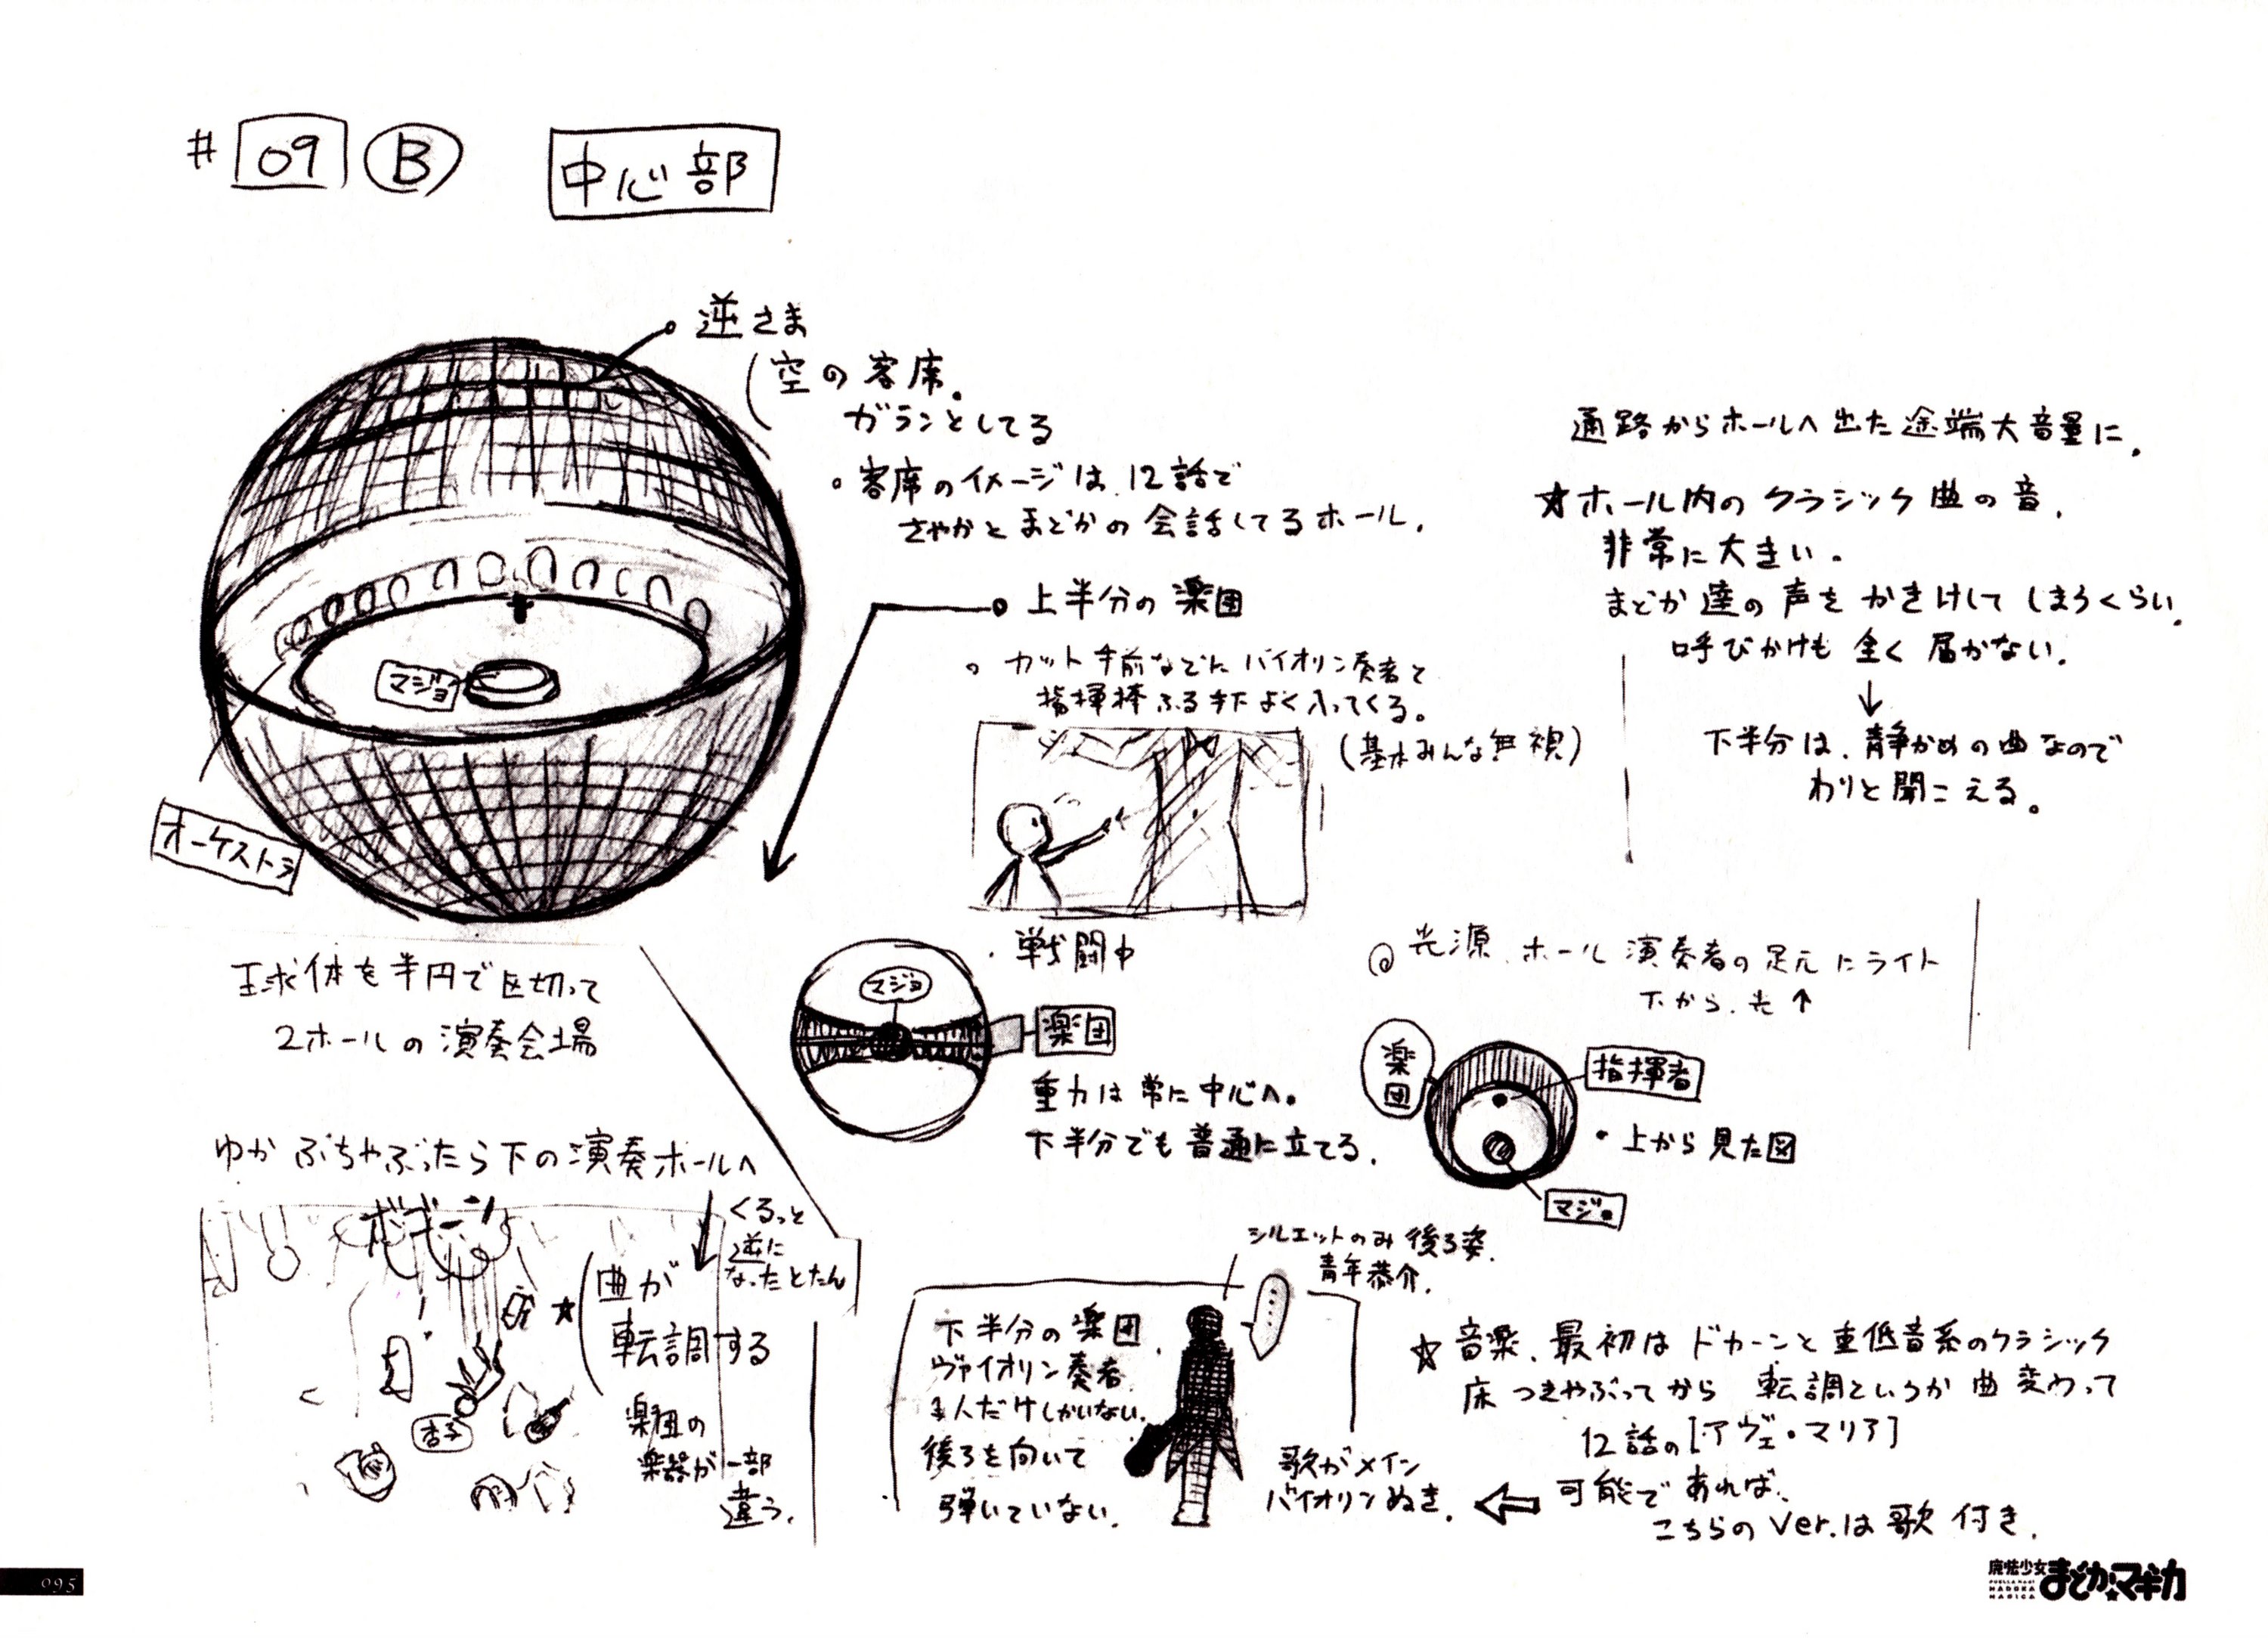 # 09 B 中心部
逆さま
空の客席.
ガランとしてる
客席のイメージは、12話で
さやかとまどかの会話してるホール.
上半分の楽団
カット手前などに バイオリン奏者と
指揮棒ふる手下よく入ってくる。
(基本みんな無視)
マジョ
オーケストラ
球体を半円で区切って
2ホールの演奏会場
通路からホールへ出た途端大音量に.
☆ホール内のクラシック曲の音.
非常に大きい.
まどか達の声をかきけしてしまうくらい.
呼びかけも全く届かない.
↓
下半分は、静かめの曲なので
わりと聞こえる。
・戦闘中
マジョ
楽団
重力は常に中心へ。
下半分でも普通に立てる.
◎光源、ホール演奏者の足元にライト
下から、光↑
楽団
指揮者
・上から見た図
マジョ
ゆかぶちやぶったら下の演奏ホールへ
くるっと
逆に
なったとたん
☆
曲が
転調する
楽団の
楽器が一部
違う.
杏子
シルエットのみ 後ろ姿.
青年恭介.
下半分の楽団.
ヴァイオリン奏者
1人だけしかいない.
後ろを向いて
弾いていない.
歌がメイン
バイオリンぬき.
☆音楽、最初はドカーンと重低音系のクラシック
床つきやぶってから 転調というか曲変わって
12話の[アヴェ・マリア]
可能であれば、
こちらのVer.は歌付き.
095
魔法少女
まどか☆マギカ
PUELLA MAGI
MADOKA
MAGICA